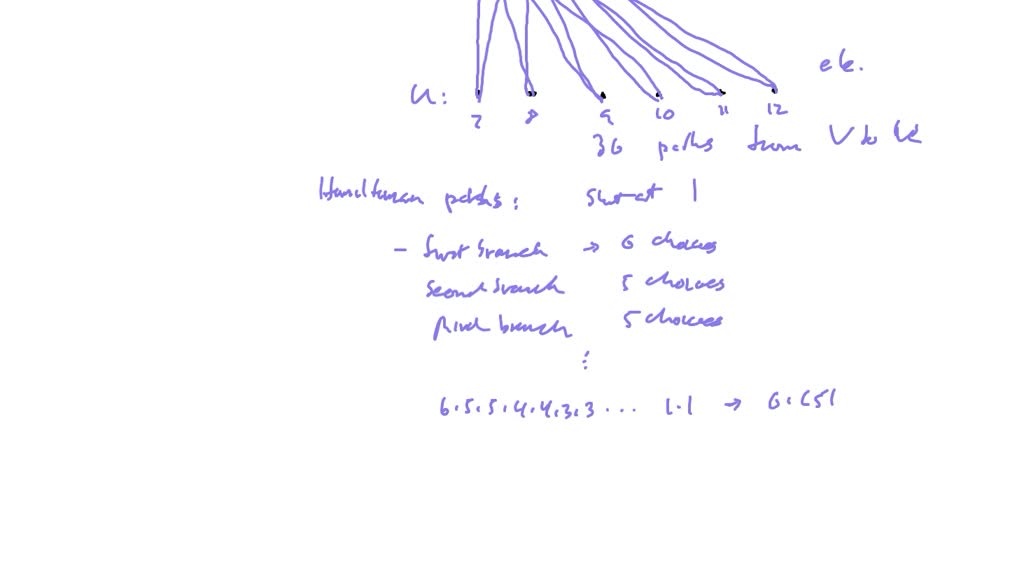 etc.
U:
7 8 9 10 11 12
36 paths from V to U
Hamiltonian paths: start at 1
- first branch → 6 choices
second branch 5 choices
third branch 5 choices
⋮
6.5.5.4.4.3.3... 1.1 → 6.(5!